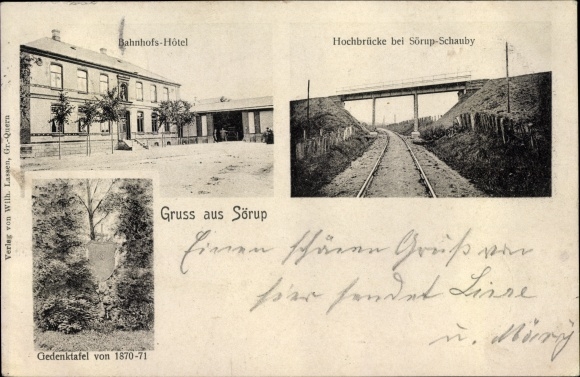 Bahnhofs-Hôtel
Hochbrücke bei Sörup-Schauby
Verlag von Wilh. Lassen, Gr.-Quern.
Gruss aus Sörup
Einen schönen Gruß von
hier sendet
u.
Gedenktafel von 1870-71